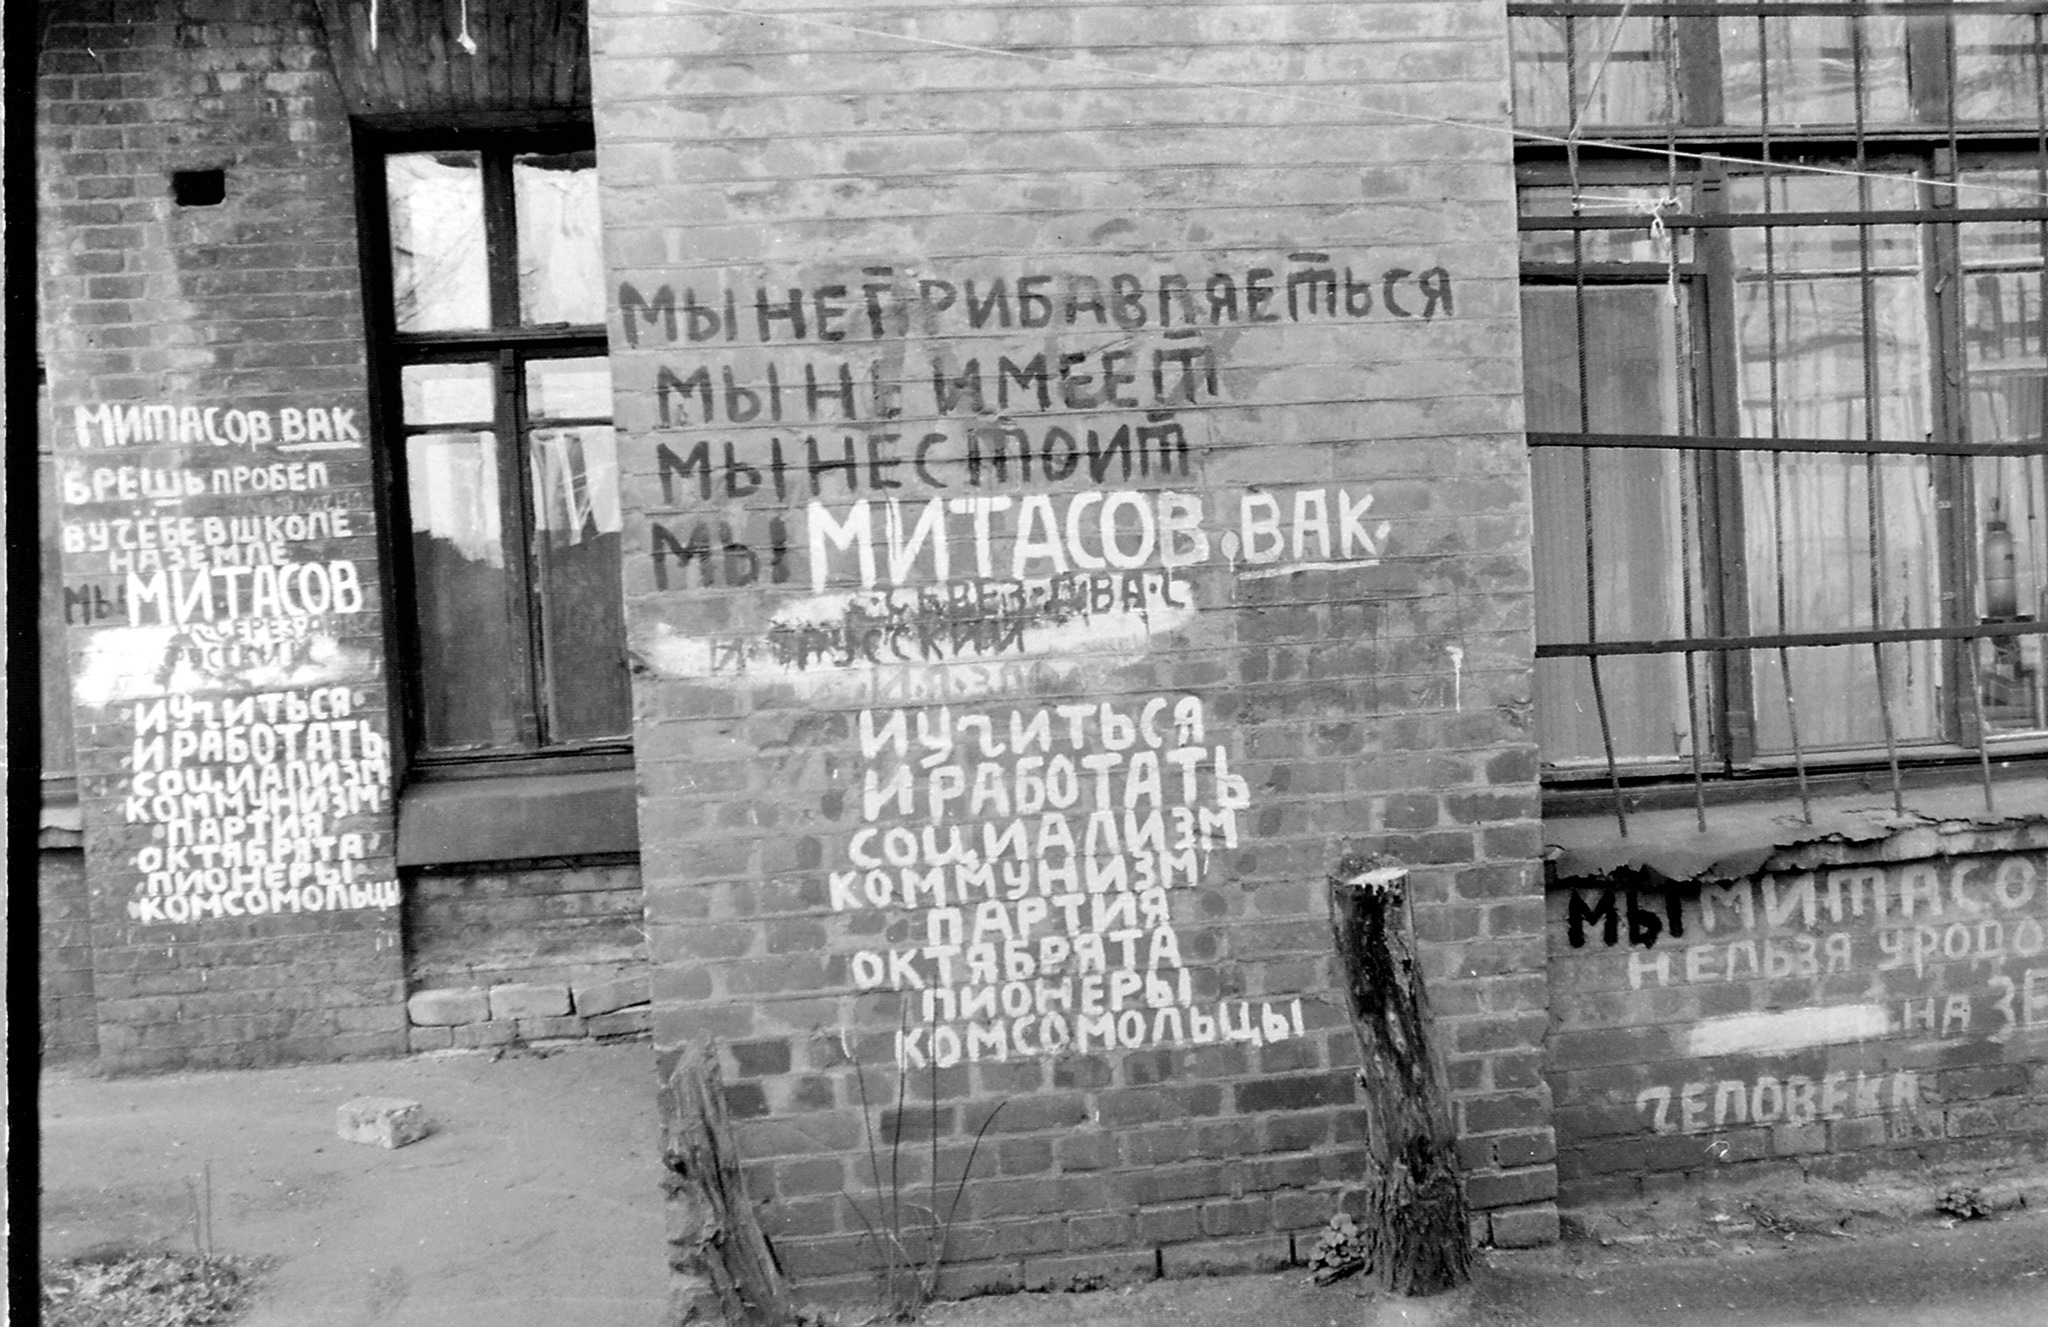 МИТАСОВ ВАК
БРЕШЬ ПРОБЕЛ
В УЧЁБЕ В ШКОЛЕ
НА ЗЕМЛЕ
МЫ МИТАСОВ
ЧЕРЕЗ
РУССКИЙ
И УЧИТЬСЯ
И РАБОТАТЬ
СОЦИАЛИЗМ
КОММУНИЗМ
ПАРТИЯ
ОКТЯБРЯТА
ПИОНЕРЫ
КОМСОМОЛЬЦЫ
МЫ НЕ ПРИБАВЛЯЕТЬСЯ
МЫ НЕ ИМЕЕТ
МЫ НЕ СТОИТ
МЫ МИТАСОВ.ВАК.
ЧЕРЕЗ ДВА С
И РУССКИЙ
И УЧИТЬСЯ
И РАБОТАТЬ
СОЦИАЛИЗМ
КОММУНИЗМ
ПАРТИЯ
ОКТЯБРЯТА
ПИОНЕРЫ
КОМСОМОЛЬЦЫ
МЫ МИТАСО
НЕЛЬЗЯ УРОДО
НА ЗЕ
ЧЕЛОВЕКА